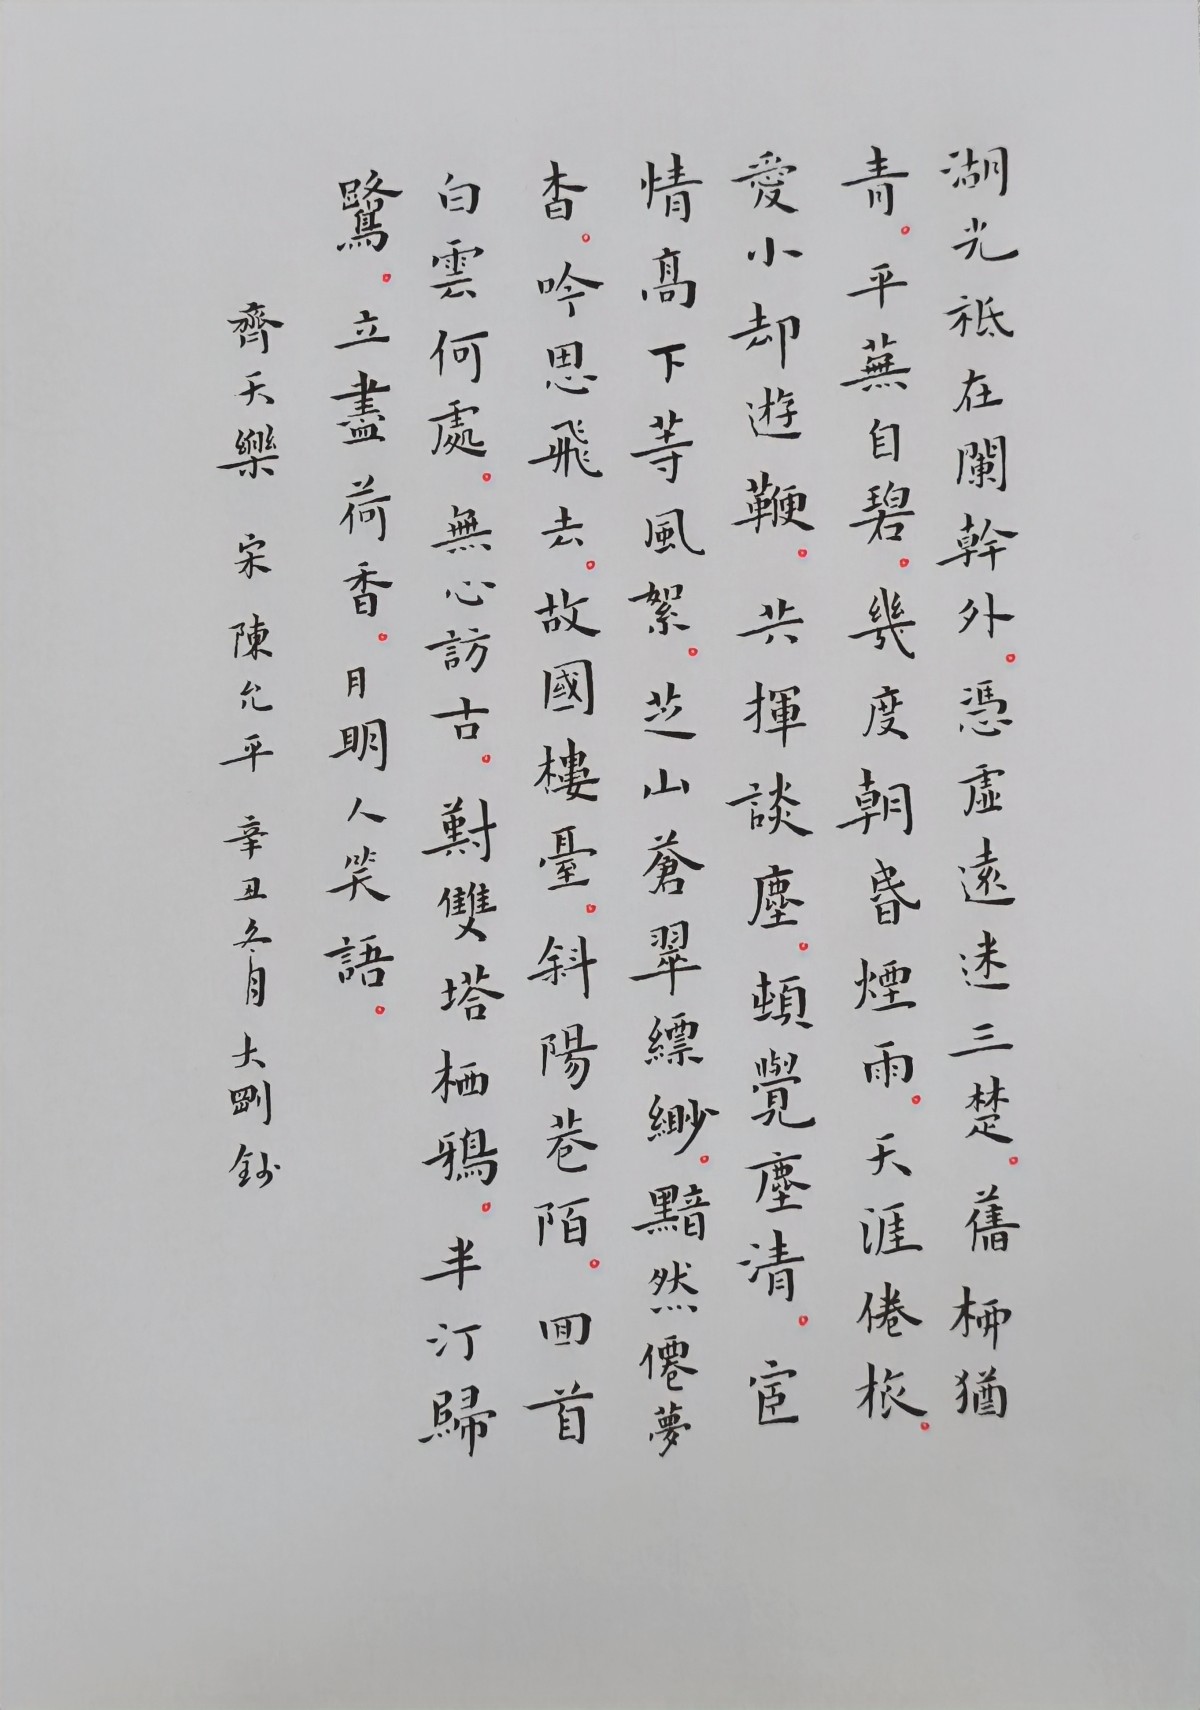 湖光祗在闌幹外。憑虛遠迷三楚。舊柳猶
青。平蕪自碧。幾度朝昏煙雨。天涯倦旅。
愛小却遊鞭。共揮談麈。頓覺塵清。宦
情高下等風絮。芝山蒼翠縹緲。黯然僊夢
杳。吟思飛去。故國樓臺。斜陽巷陌。回首
白雲何處。無心訪古。對雙塔栖鴉。半汀歸
鷺。立盡荷香。月明人笑語。
齊天樂 宋 陳允平 辛丑冬月 大剛鈔